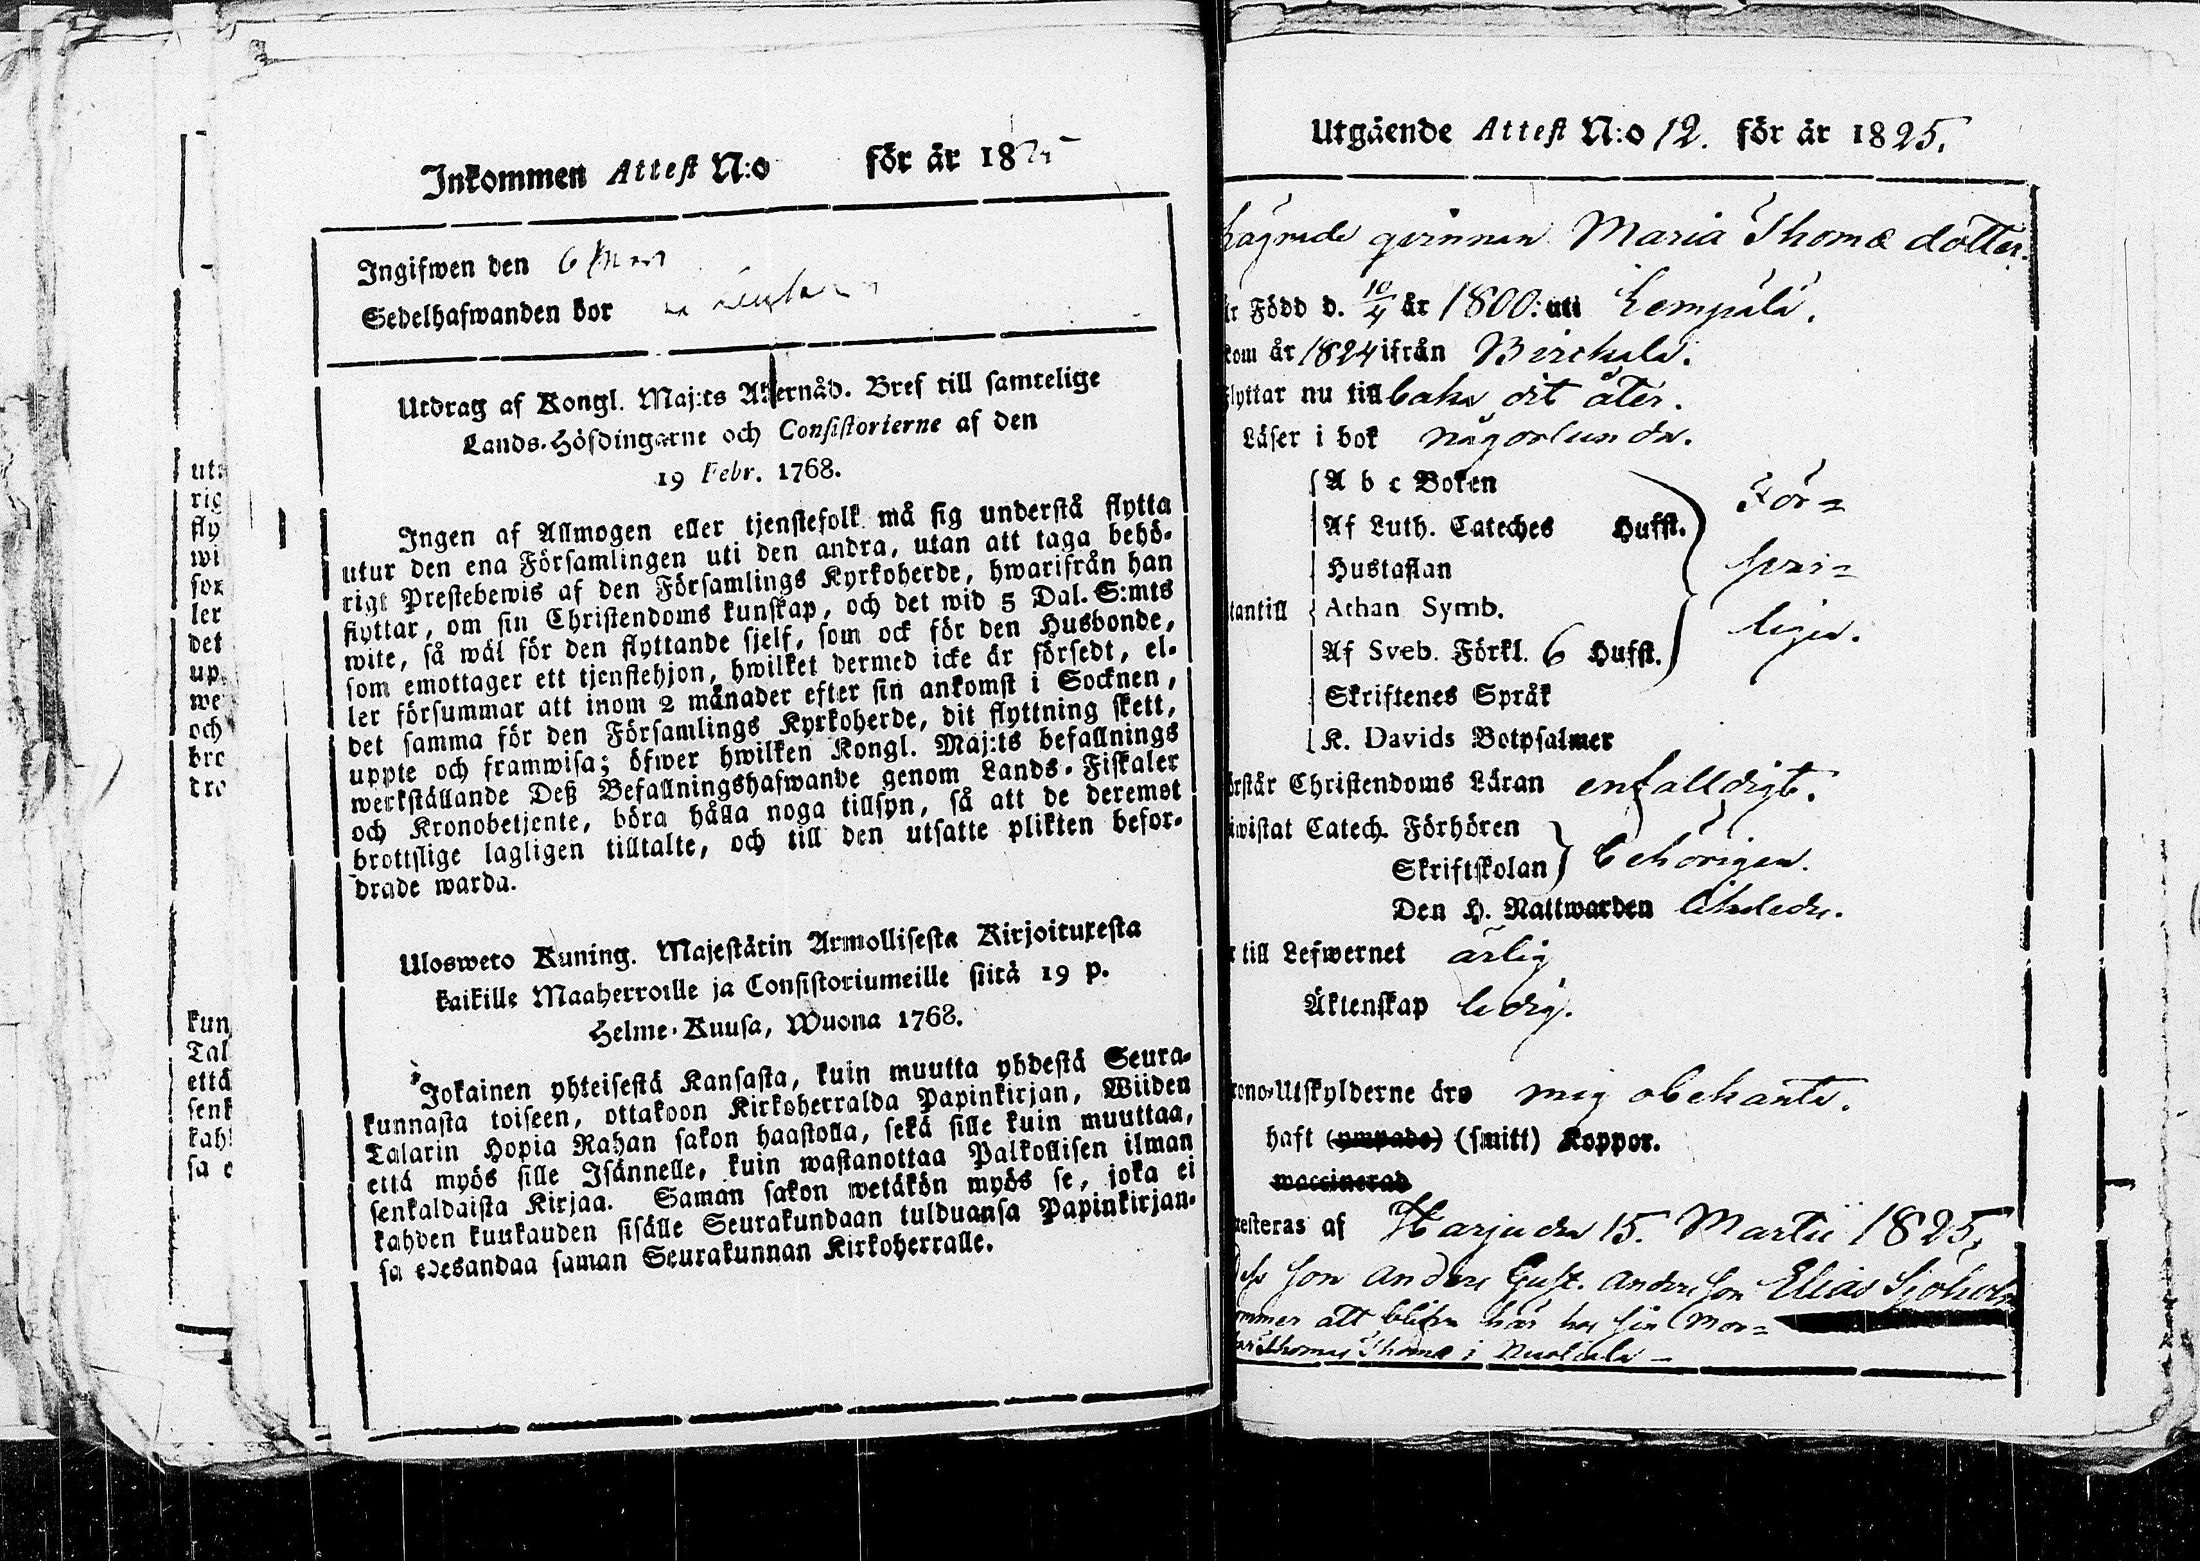 Inkommen Attest N:o för år 18
Ingifwen den 6
Sedelhafwanden bor
Utdrag af Kongl. Maj:ts Allernåd. Bref till samtelige
Lands-Höfdingarne och Consistorierne af den
19 Febr. 1768.
Ingen af Allmogen eller tjenstefolk må sig understå flytta
utur den ena Församlingen uti den andra, utan att taga behö-
rigt Prestebewis af den Församlings Kyrkoherde, hwarifrån han
flyttar, om sin Christendoms kunskap, och det wid 5 Dal. S:mts
wite, så wäl för den flyttande sjelf, som ock för den Husbonde,
som emottager ett tjenstehjon, hwilket dermed icke är försedt, el-
ler försummar att inom 2 månader efter sin ankomst i Socknen,
det samma för den Församlings Kyrkoherde, dit flyttning skett,
uppte och framwisa; öfwer hwilken Kongl. Maj:ts befallnings
werkställande Deß Befallningshafwande genom Lands-Fiskaler
och Kronobetjente, böra hålla noga tillsyn, så att de deremot
brottslige lagligen tilltalte, och till den utsatte plikten befor-
drade warda.
Ulosweto Kuning. Majestätin Armollisesta Kirjoituxesta
kaikille Maaherroille ja Consistoriumeille siitä 19 p.
Helme-Kuusa, Wuona 1768.
Jokainen yhteisestä Kansasta, kuin muutta yhdestä Seura-
kunnasta toiseen, ottakoon Kirkoherralda Papinkirjan, Wiiden
Talarin Hopia Rahan sakon haastolla, sekä sille kuin muuttaa,
että myös sille Isännelle, kuin wastanottaa Palkollisen ilman
senkaldaista Kirjaa. Saman sakon wetäkön myös se, joka ei
kahden kuukauden sisälle Seurakundaan tulduansa Papinkirjan-
sa edesandaa saman Seurakunnan Kirkoherralle.
Utgående Attest N:o 12. för år 1825.
qvinnan Maria Thomæ dotter.
är Född d. 10/4 år 1800: uti Lempälä.
kom år 1824 ifrån Birckala.
flyttar nu till baka dit åter.
Läser i bok någorlunda.
A b c Boken
Af Luth. Cateches Hufst. För=
Hustaflan svar=
utantill Athan Symb.
Af Sveb. Förkl. 6 Hufst. ligen.
Skriftenes Språk
K. Davids Botpsalmer
förstår Christendoms Läran enfalldigt.
biwistat Catech. Förhören
Skriftskolan behörigen.
Den H. Nattwarden likaledes.
är till Lefwernet ärlig
Äktenskap ledig.
Krono-Utskylderne äro mig obekanta.
haft (ympade) (smitt) Koppor.
waccinerad
Attesteras af Harju den 15. Martii 1825,
Dess son Anders Gust. Andersson Elias Sjöholm
kommer att blifva här hos sin Mor=
Thomas Thomæ i